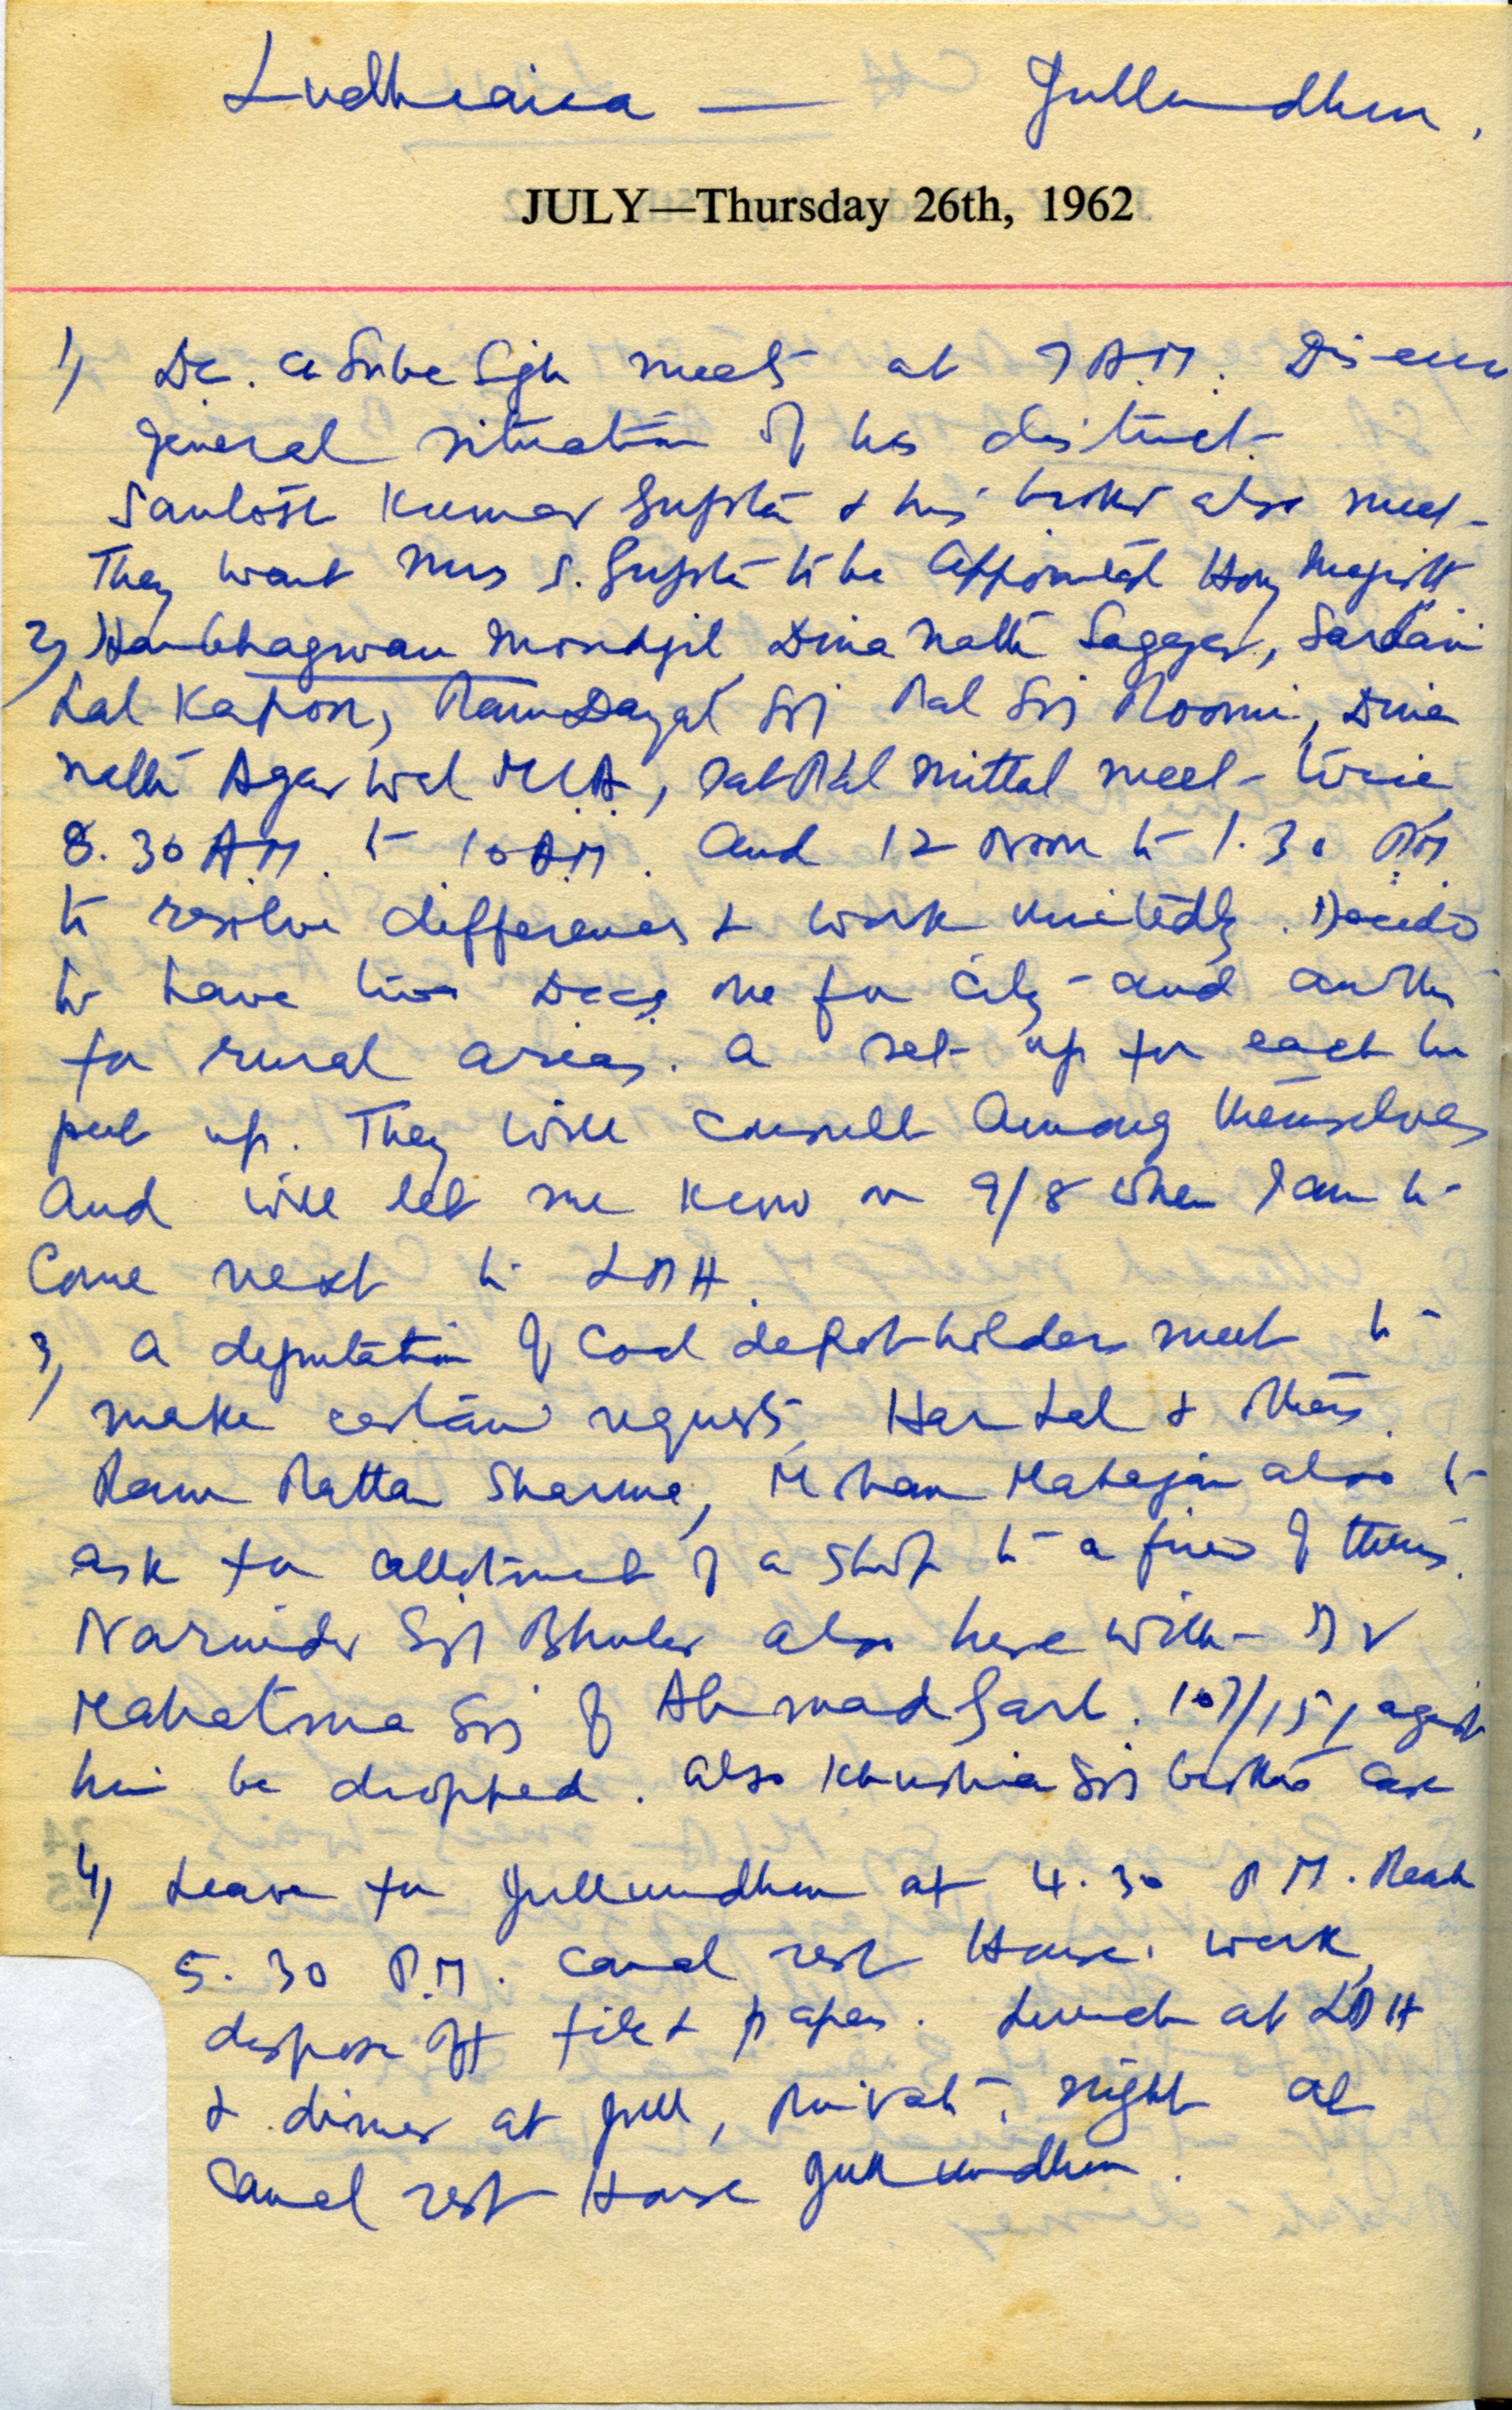 Ludhiana — Jullundhur.
JULY—Thursday 26th, 1962
1) DC. Sube Sgh meets at 7 A.M. Discuss
general situation of his district.
Santosh Kumar Gupta & his brother also meet.
They want Mrs S. Gupta to be appointed Hony Magistt
2) Harbhagwan Moudgil Dina Nath Saggar, Sardari
Lal Kapoor, Ram Dayal Sgj Pal Sgj Roomi, Dina
Nath Agarwal MLA, Sat Pal Mittal meet twice
8.30 A.M. to 10 A.M. and 12 Noon to 1.30 PM
to resolve differences & work unitedly. Decide
to have two Dccs one for city and another
for rural areas. A set up for each be
put up. They will consult among themselves
and will let me know on 9/8 when I am to
come next to LDH.
3) A deputation of Coal depot holders meet to
make certain requests, Har Lal & others.
Ram Rattan Sharma, Mohan Mahajan also to
ask for allotment of a shop to a firm of theirs.
Narinder Sgj Bhuler also here with Dr
Mahatma Sgj of Ahmadgarh. 107/151 against
him be dropped. Also Khushia Sgj brothers case
4) Leave for Jullundhur at 4.30 P.M. Reach
5.30 P.M. Canal rest House. work,
dispose off file & papers. Lunch at LDH
& dinner at Jull, Private. night at
Canal rest House Jullundhur.